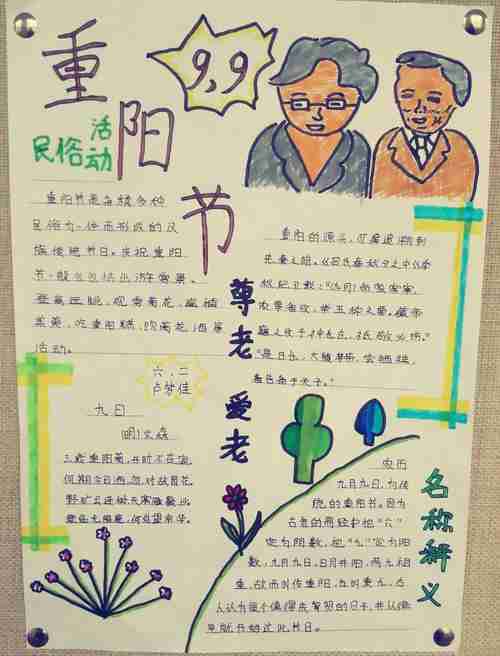 重阳节
9,9
民俗活动
重阳节是杂糅多种
民俗为一体而形成的汉
族传统节日。庆祝重阳
节一般会包括出游赏景、
登高远眺、观赏菊花、遍插
茱萸、吃重阳糕、饮菊花酒等
活动。
尊老爱老
重阳的源头，可追溯到
先秦之前。《吕氏春秋》之中《季
秋纪》
六、二
卢梦佳
九日
三载重阳菊，开时不在家
何期今日酒，忽对故园花
野旷云连树，天寒雁聚沙
登临无限意，何处望京华。
名称释义
农历
九月九日，为传
统的重阳节。因为
古老的易经中把“六”
定为阴数，把“九”定为阳
数，九月九日，日月并阳，两九相
重，故而叫作重阳，也叫重九，古
人认为是个值得庆贺的日子，并从很
早就开始过此节日。